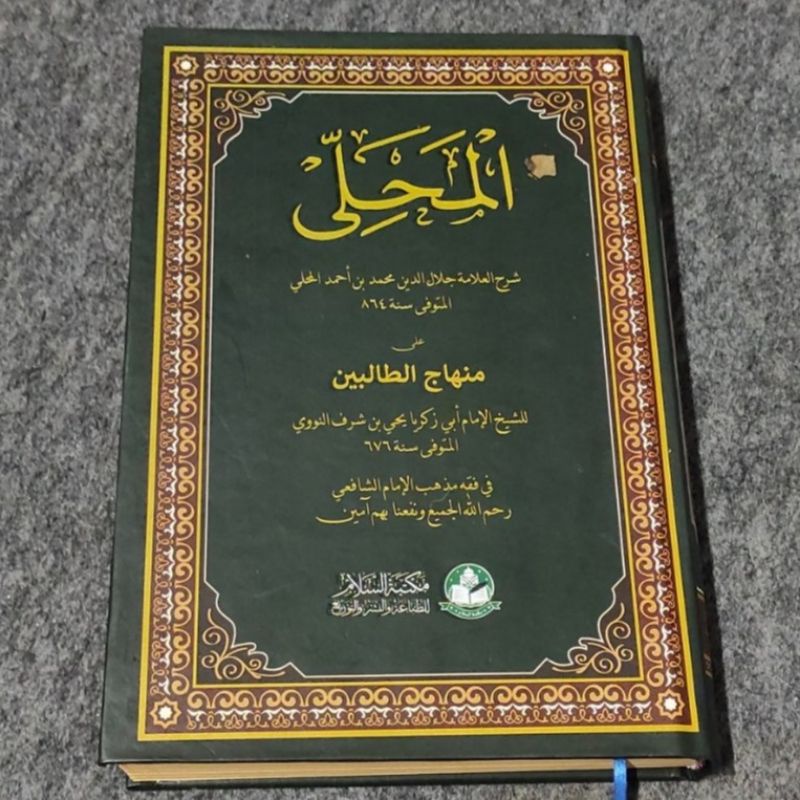 المَحَلِّى
شرح العلامة جلال الدين محمد بن أحمد المحلي
المتوفى سنة ٨٦٤
على
منهاج الطالبين
للشيخ الإمام أبي زكريا يحي بن شرف النووي
المتوفى سنة ٦٧٦
في فقه مذهب الإمام الشافعي
رحم الله الجميع ونفعنا بهم آمين
مكتبة السلام
للطباعة والنشر والتوزيع